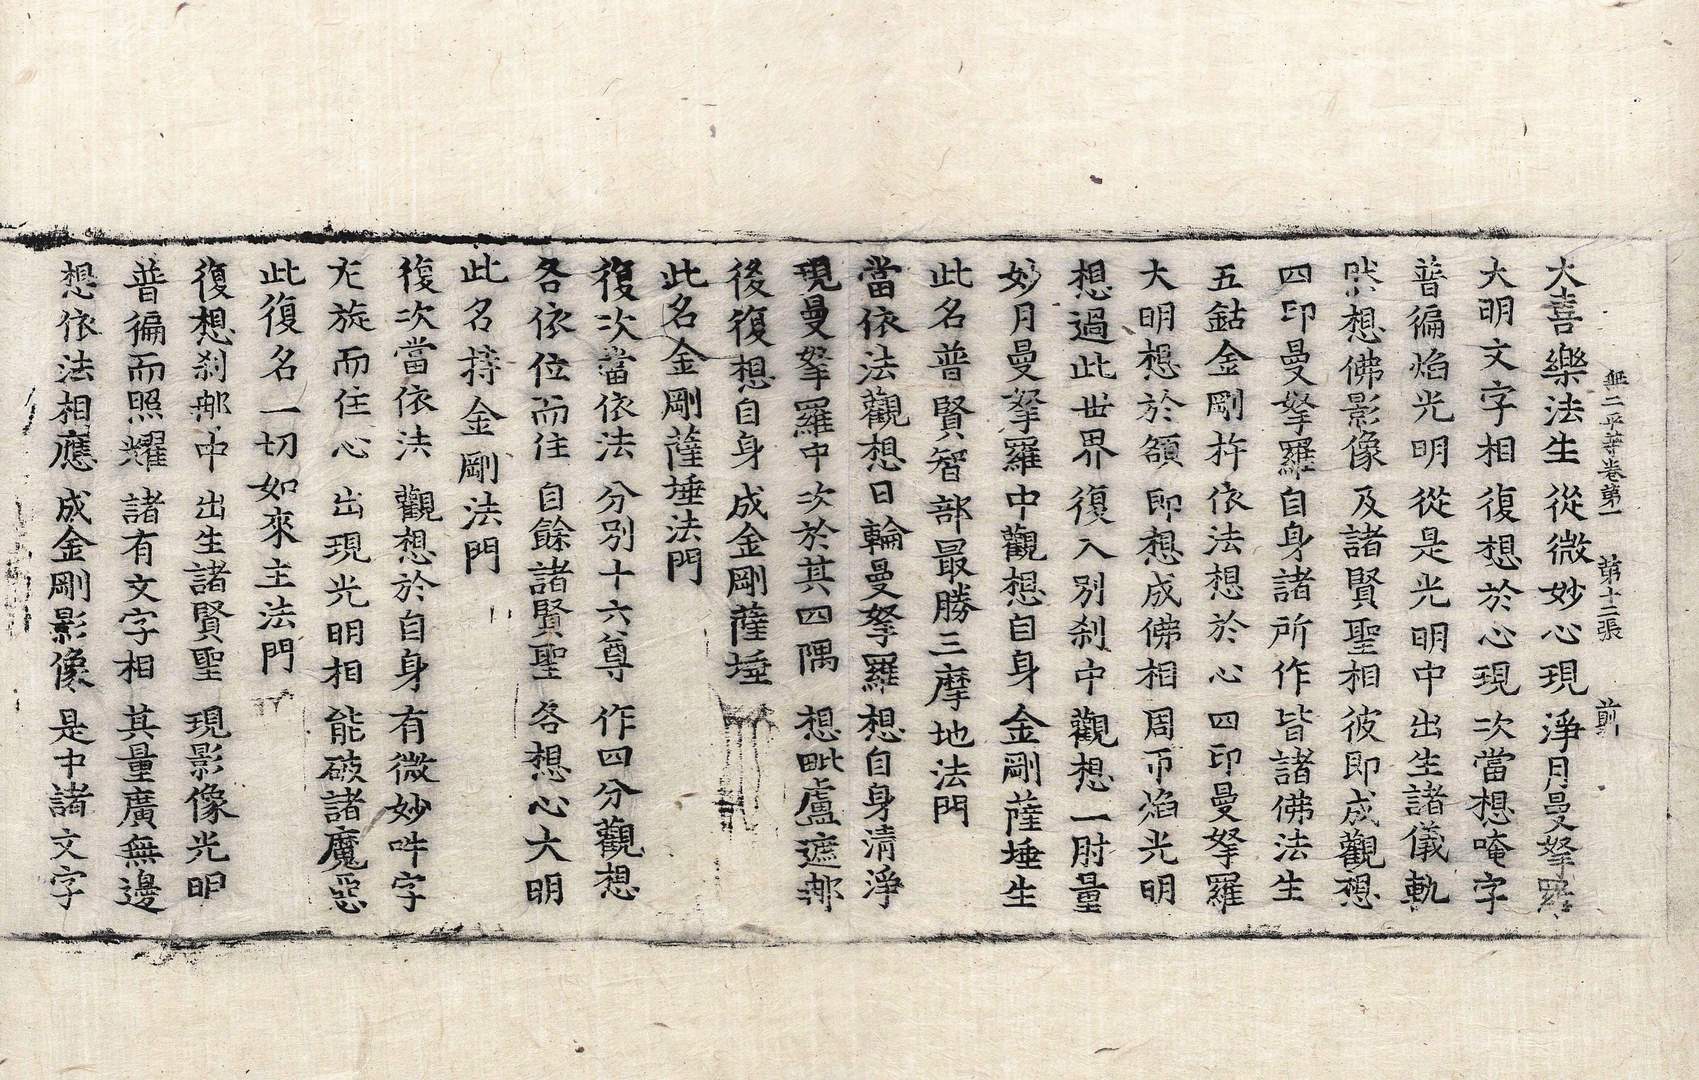 無二平等卷第一 第十二張 前
大喜樂法生 從微妙心現 淨月曼拏羅
大明文字相 復想於心現 次當想唵字
普徧焰光明 從是光明中 出生諸儀軌
然想佛影像 及諸賢聖相 彼即成觀想
四印曼拏羅 自身諸所作 皆諸佛法生
五鈷金剛杵 依法想於心 四印曼拏羅
大明想於額 即想成佛相 周帀焰光明
想過此世界 復入別刹中 觀想一肘量
妙月曼拏羅 中觀想自身 金剛薩埵生
此名普賢智部最勝三摩地法門
當依法觀想 日輪曼拏羅 想自身清淨
現曼拏羅中 次於其四隅 想毗盧遮那
後復想自身 成金剛薩埵
此名金剛薩埵法門
復次當依法 分別十六尊 作四分觀想
各依位而住 自餘諸賢聖 各想心大明
此名持金剛法門
復次當依法 觀想於自身 有微妙吽字
右旋而住心 出現光明相 能破諸魔惡
此復名一切如來主法門
復想刹那中 出生諸賢聖 現影像光明
普徧而照耀 諸有文字相 其量廣無邊
想依法相應 成金剛影像 是中諸文字